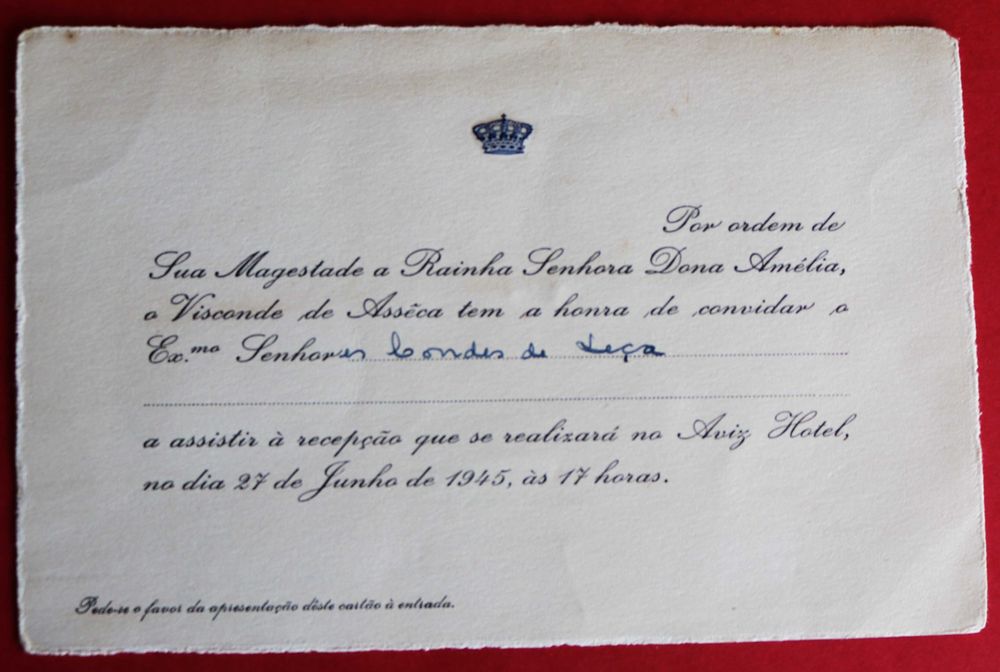 Por ordem de
Sua Magestade a Rainha Senhora Dona Amélia,
o Visconde de Assêca tem a honra de convidar o
Ex.mo Senhores Condes de Leça
a assistir à recepção que se realizará no Aviz Hotel,
no dia 27 de Junho de 1945, às 17 horas.
Pede-se o favor da apresentação dêste cartão à entrada.